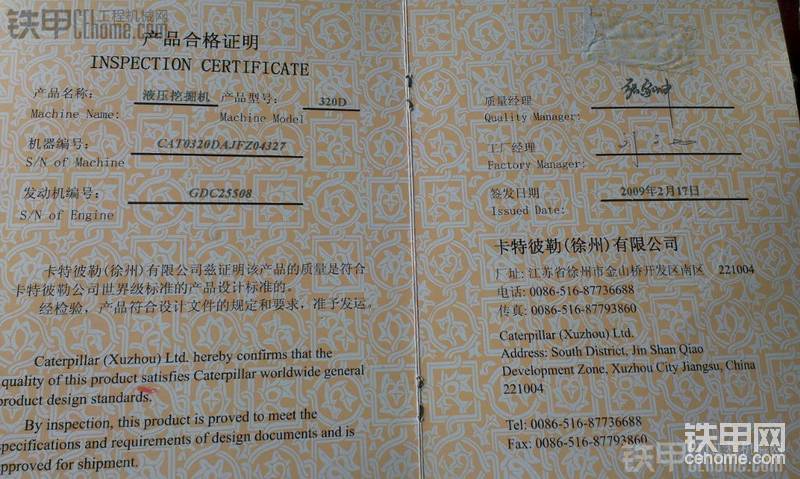 铁甲 工程机械网
cehome.com
产品合格证明
INSPECTION CERTIFICATE
产品名称: 液压挖掘机 产品型号: 320D
Machine Name: Machine Model
机器编号: CAT0320DAJFZ04327
S/N of Machine
发动机编号: GDC25508
S/N of Engine
卡特彼勒(徐州)有限公司兹证明该产品的质量是符合
卡特彼勒公司世界级标准的产品设计标准的。
经检验，产品符合设计文件的规定和要求，准予发运。
Caterpillar (Xuzhou) Ltd. hereby confirms that the
quality of this product satisfies Caterpillar worldwide general
product design standards.
By inspection, this product is proved to meet the
specifications and requirements of design documents and is
approved for shipment.
质量经理
Quality Manager:
工厂经理
Factory Manager:
签发日期 2009年2月17日
Issued Date:
卡特彼勒(徐州)有限公司
厂址: 江苏省徐州市金山桥开发区南区 221004
电话: 0086-516-87736688
传真: 0086-516-87793860
Caterpillar (Xuzhou) Ltd.
Address: South District, Jin Shan Qiao
Development Zone, Xuzhou City Jiangsu, China
221004
Tel: 0086-516-87736688
Fax: 0086-516-87793860
铁甲网
cehome.com